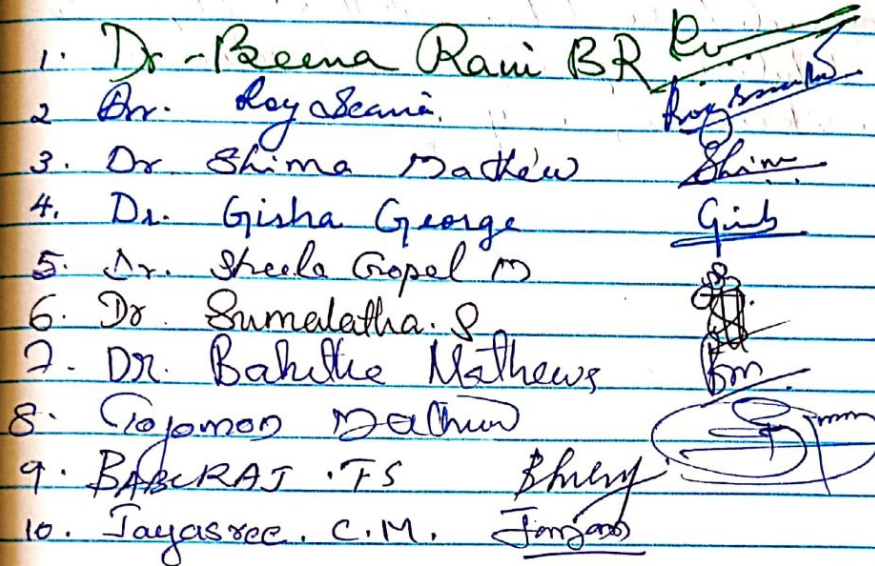 1. Dr - Beena Rani BR
2 Dr. Roy Scaria
3. Dr Shima Mathew Shima
4. Dr. Gisha George
5. Dr. Sheela Gopal M
6. Dr Sumalatha. S
7. DR. Mathews Bm
8. Jojomon Mathew
9. BABURAJ . T S
10. Jayasree. C.M.